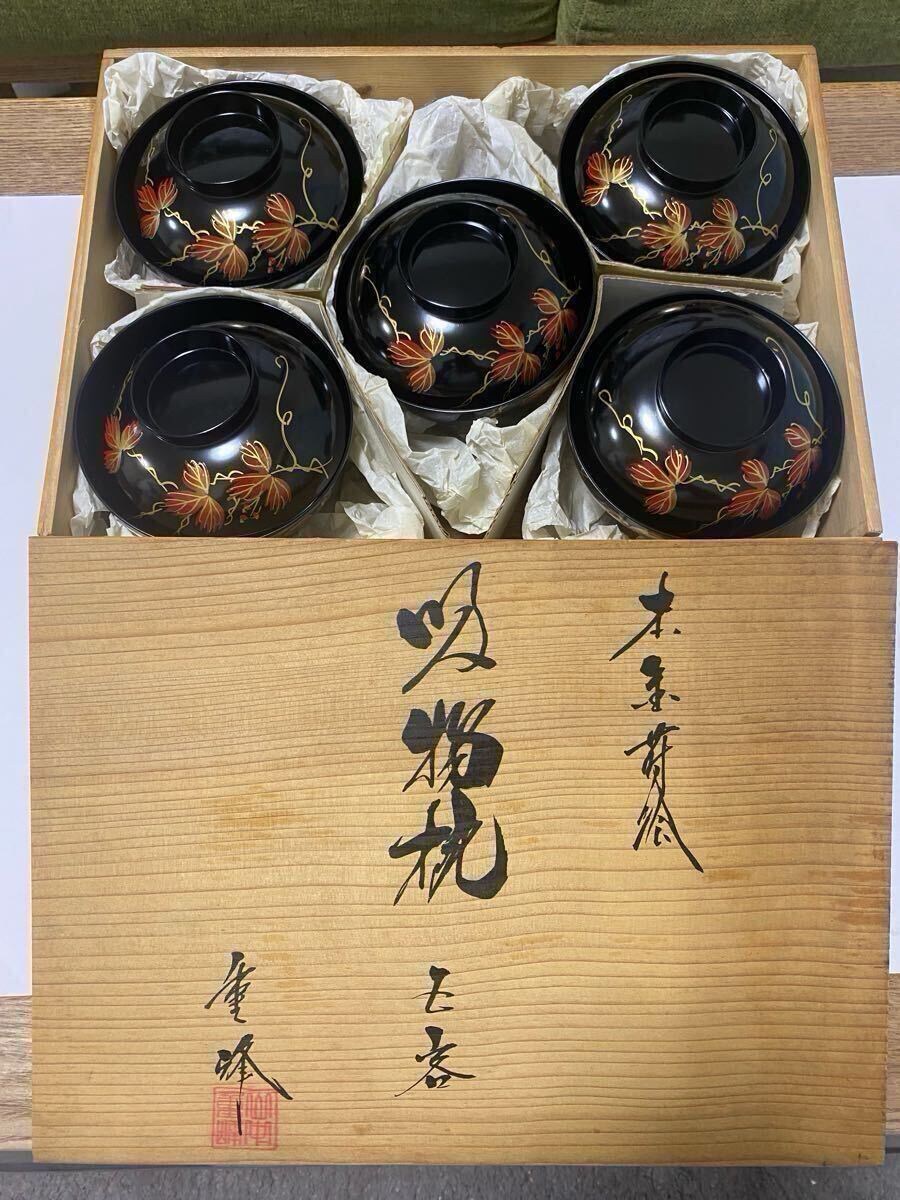 木金蒔絵
吸物椀
五客
重峰